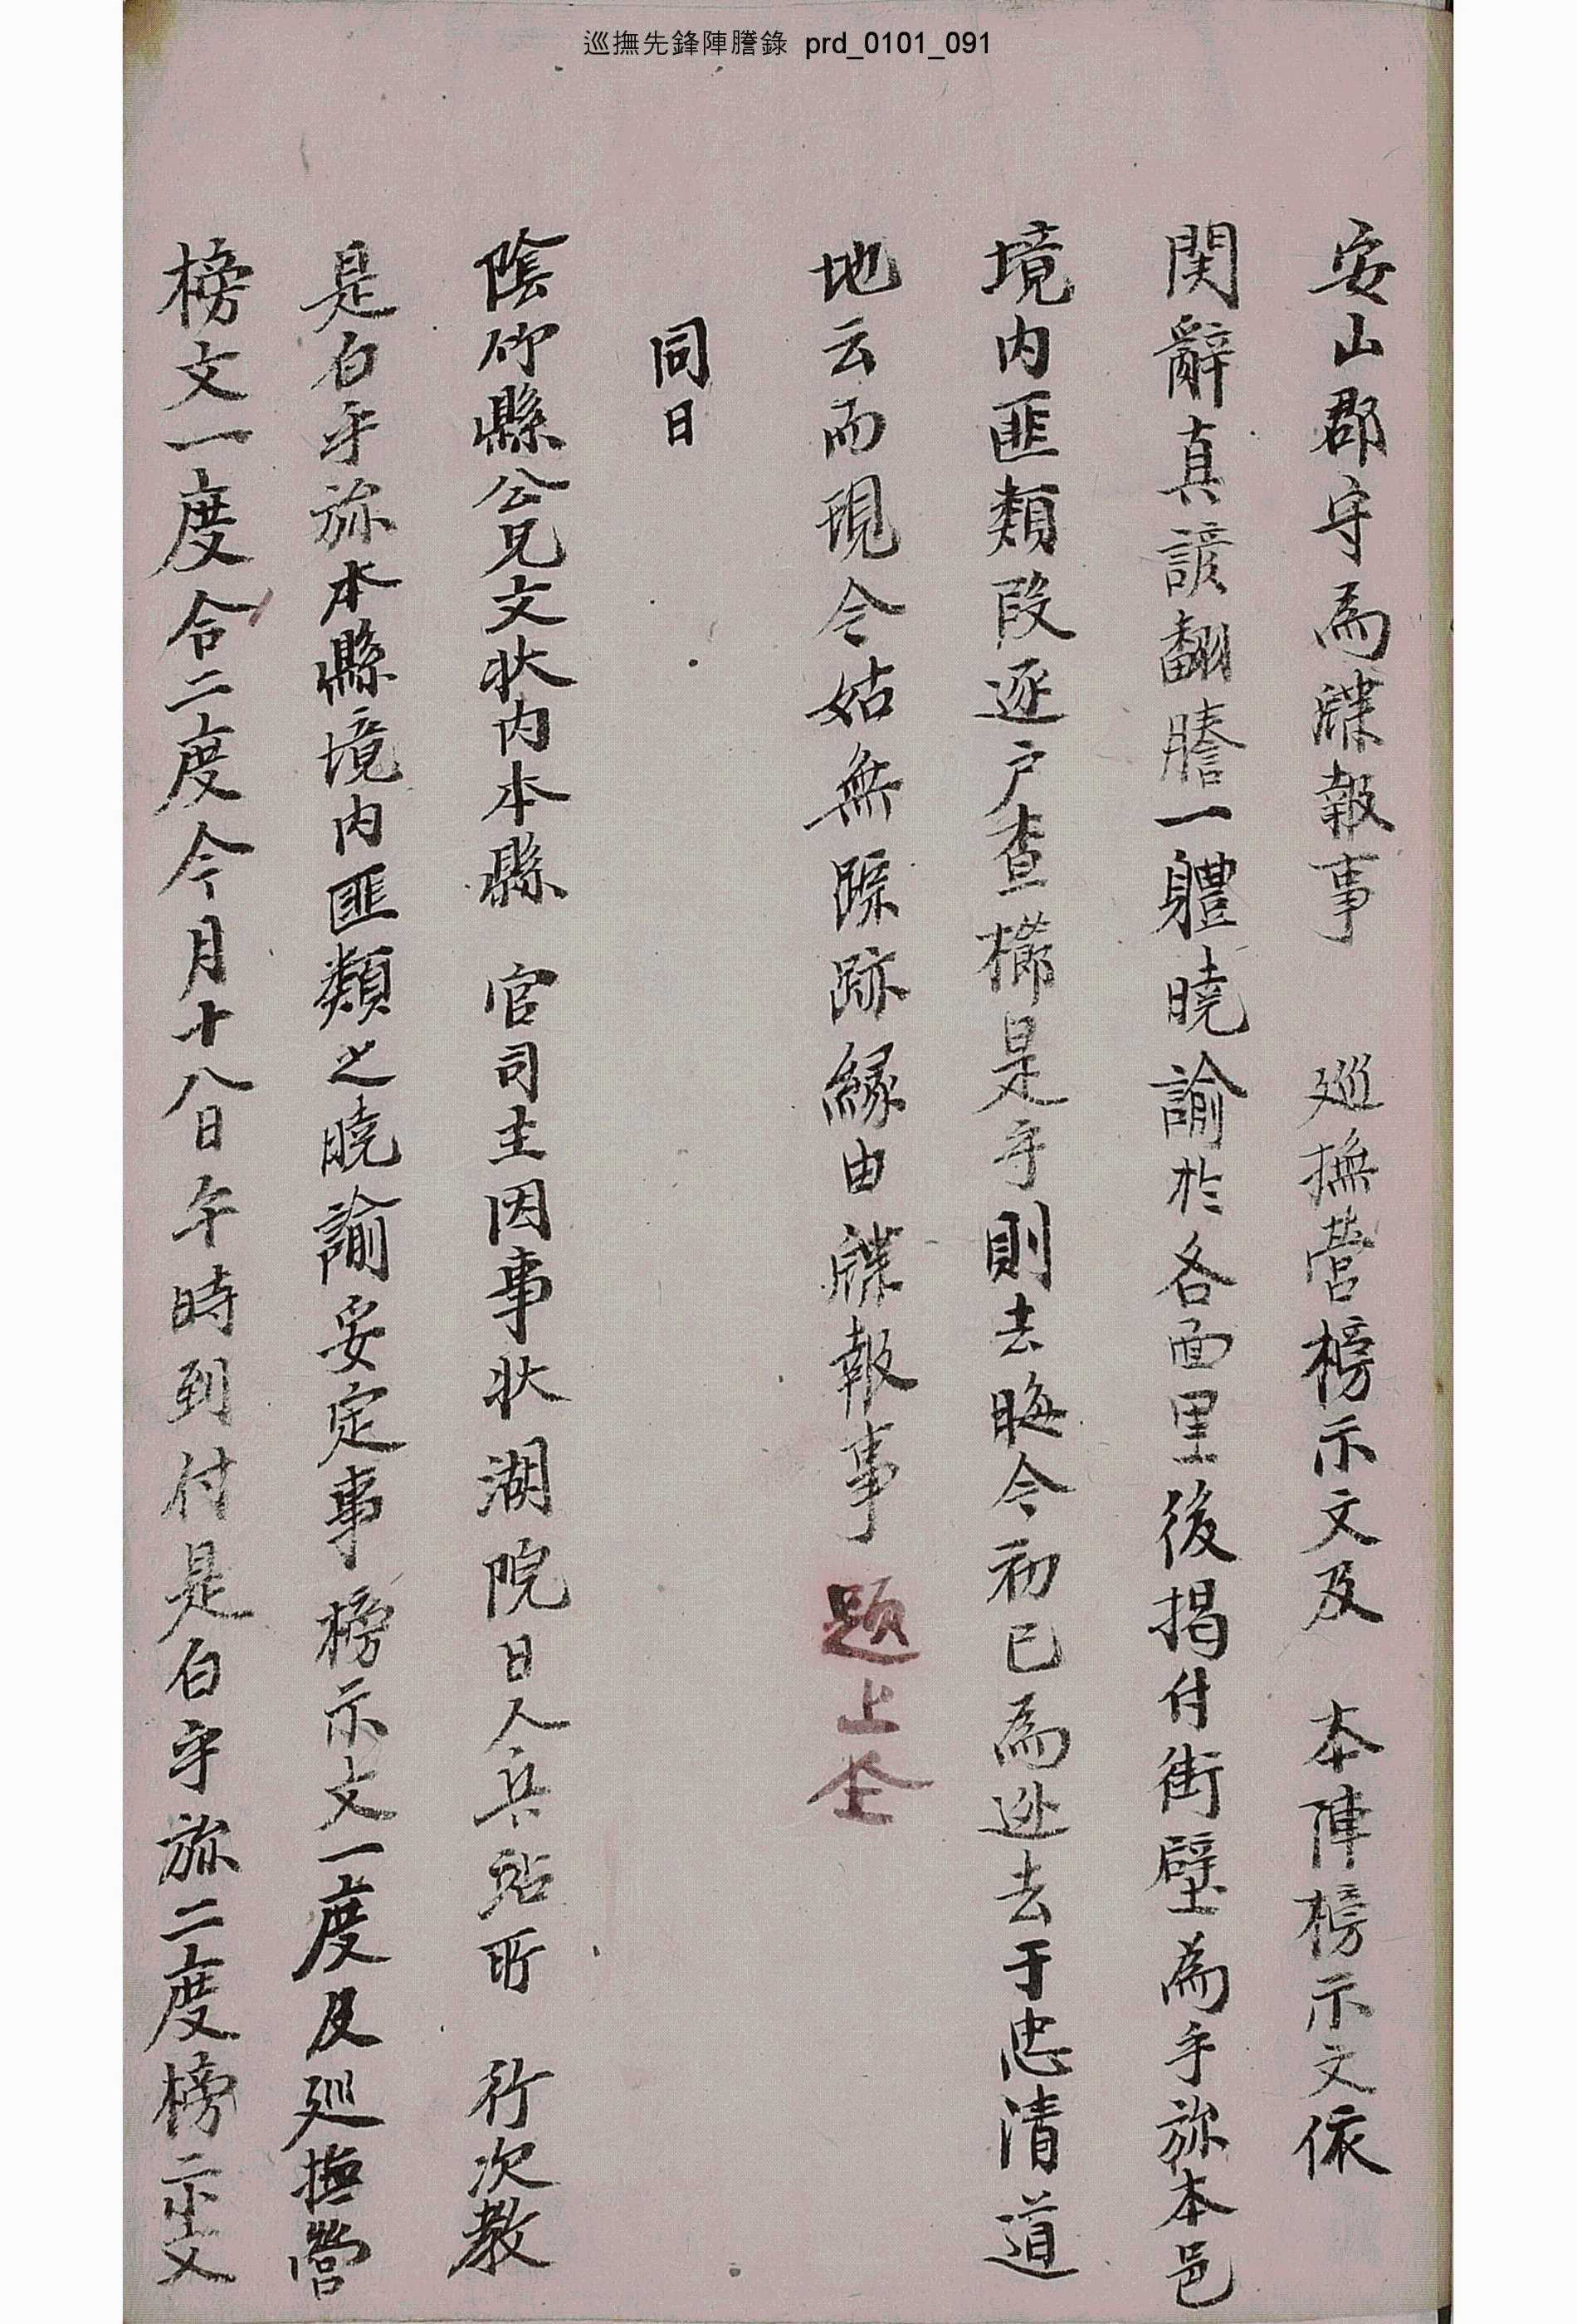 巡撫先鋒陣謄錄 prd_0101_091
安山郡守爲牒報事 巡撫營榜示文及 本陣榜示文依
関辭真諺翻謄一軆曉諭於各面里後揭付街壁為乎旀本邑
境内匪類段逐户查櫛是乎則去晦今初已爲逃去于忠清道
地云而現今姑無蹤跡緣由牒報事 題上仝
同日
陰竹縣公兄文状内本縣 官司主因事状湖院日人兵站所 行次教
是白乎旀本縣境内匪類之曉諭妥定事榜示文一度及巡撫營
榜文一度合二度今月十八日午時到付是白乎旀二度榜示文